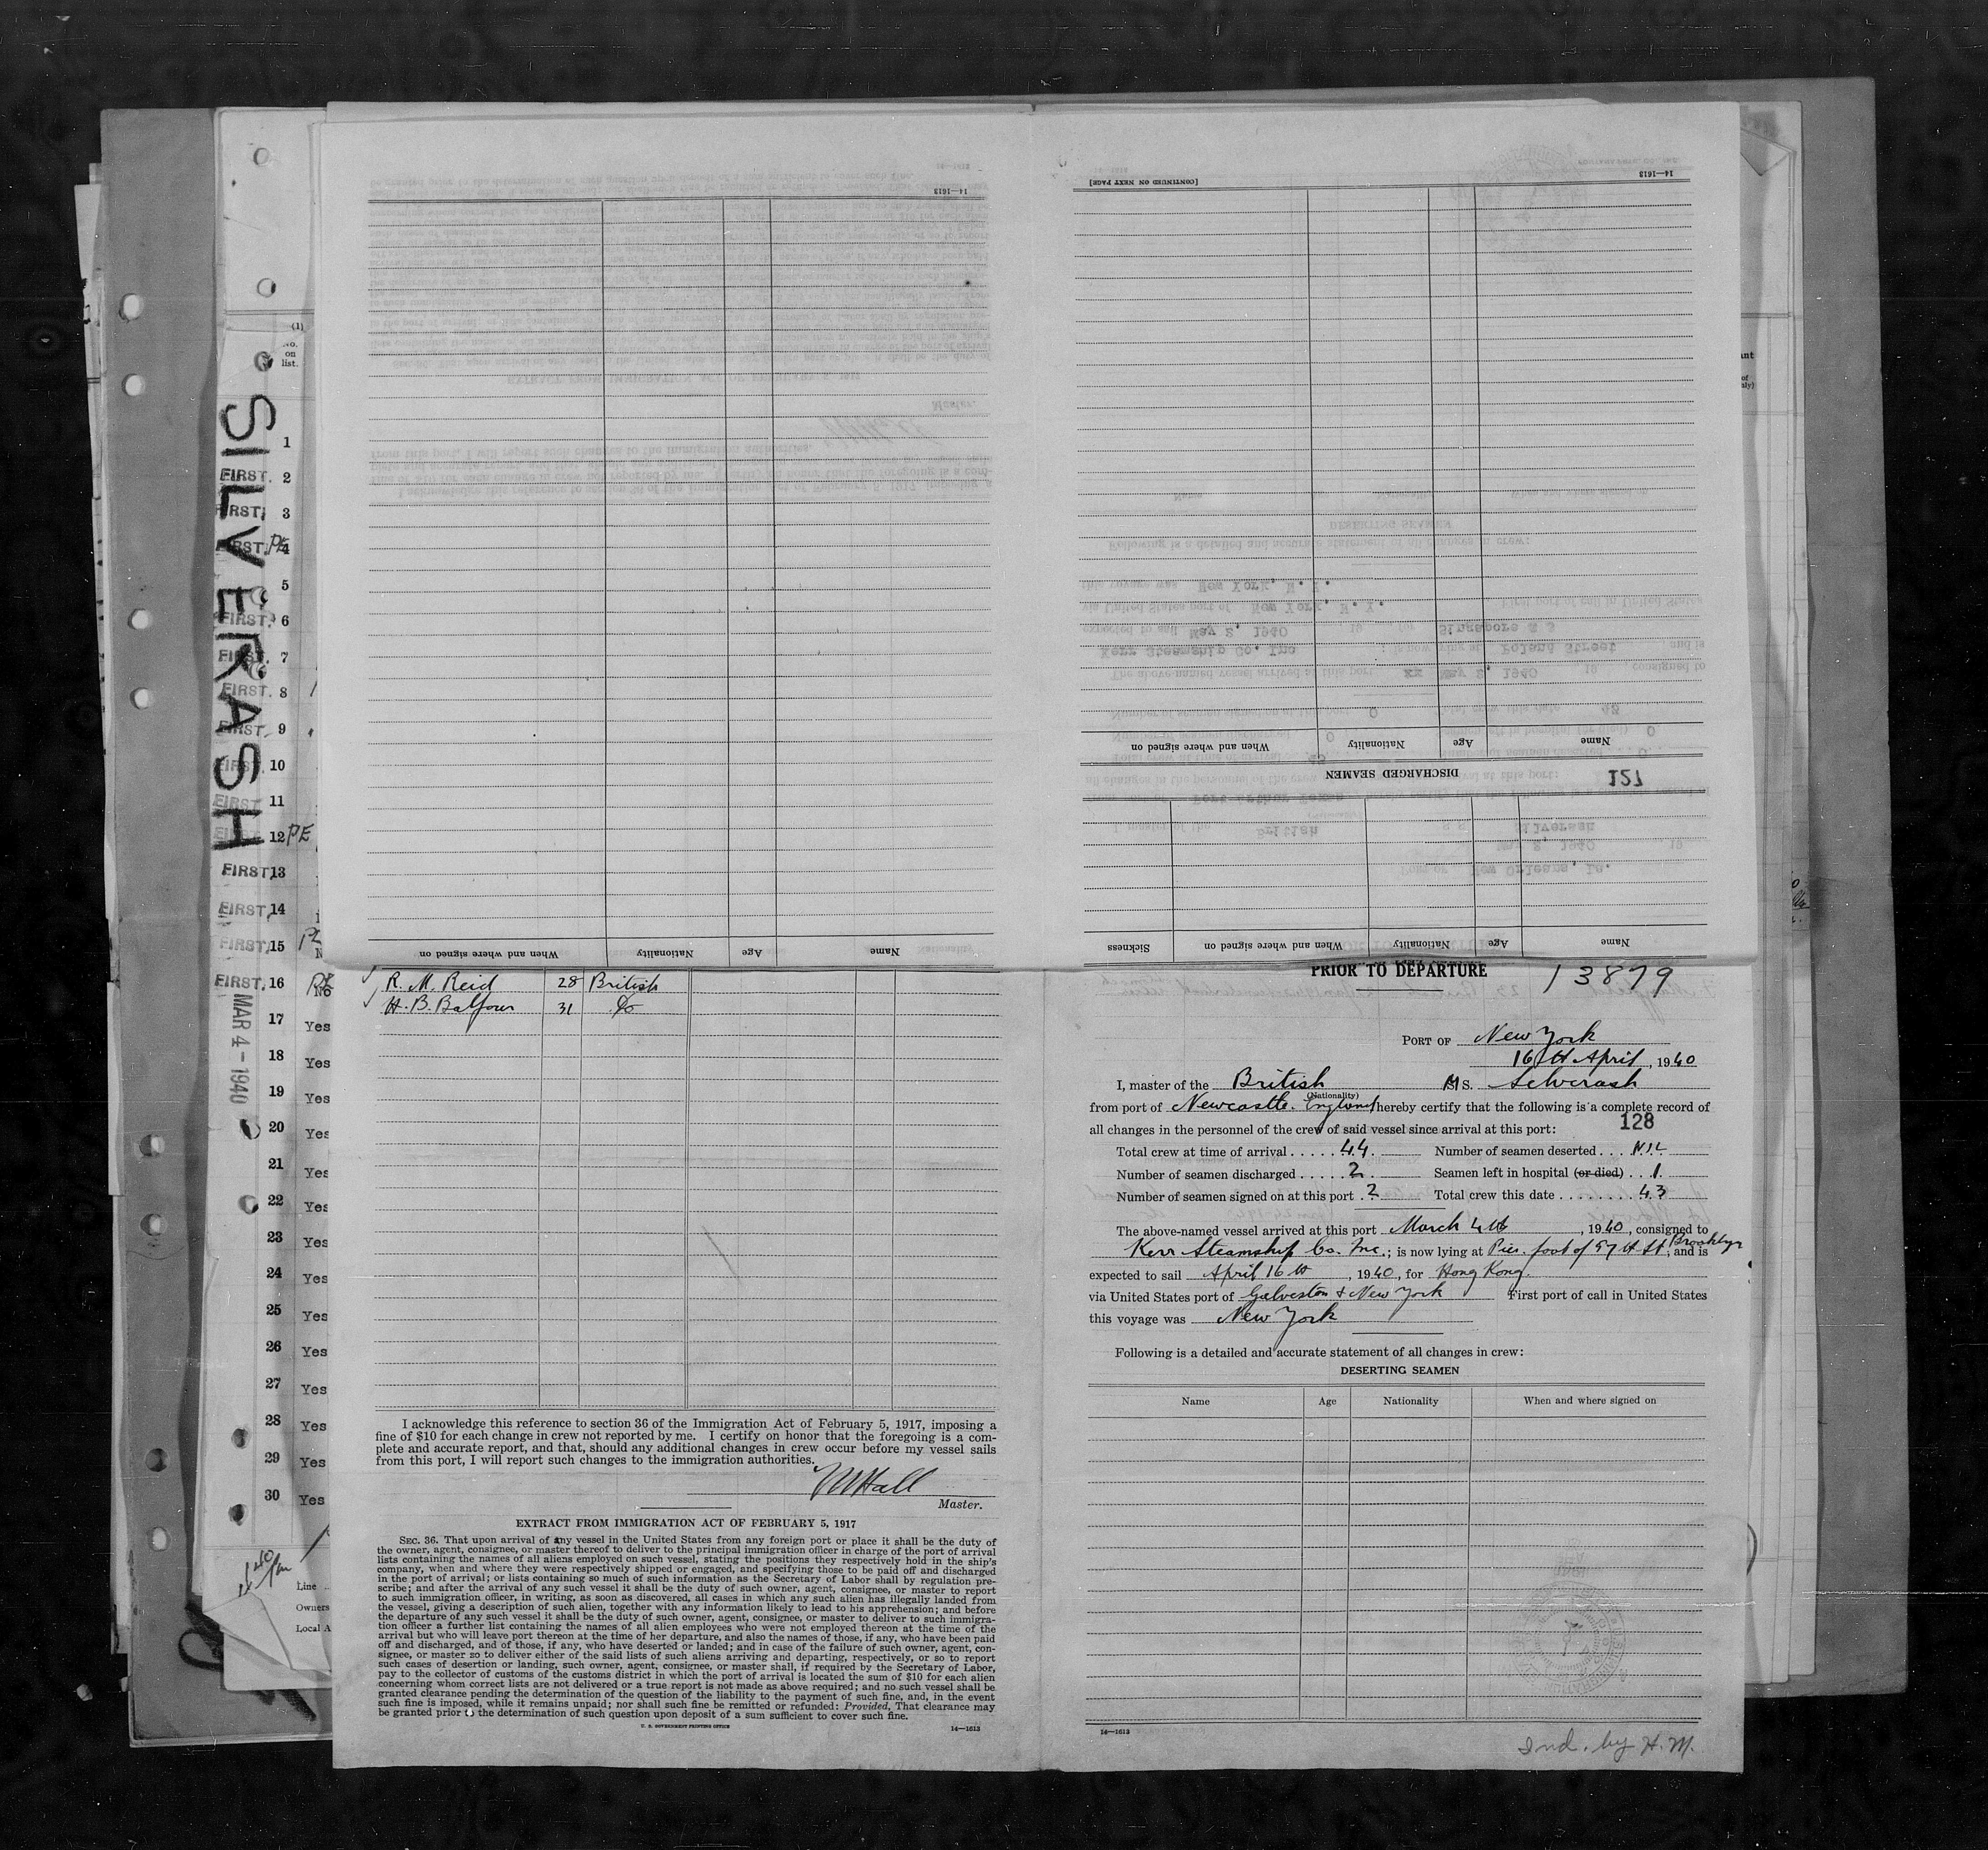 14—1613
When and where signed on Nationality Age Name
[CONTINUED ON NEXT PAGE]
14—1613
When and where signed on Nationality Age Name
DISCHARGED SEAMEN
127
Sickness When and where signed on Nationality Age Name
SILVERASH
MAR 4 - 1940
(1)
No.
on
list.
1
FIRST. 2
FIRST. 3
FIRST. PE 4
5
FIRST. 6
FIRST. 7
FIRST. 8
FIRST. 9
FIRST. 10
FIRST 11
12 PE
FIRST. 13
FIRST. 14
FIRST. 15
FIRST. 16 No
17 Yes
18 Yes
19 Yes
20 Yes
21 Yes
22 Yes
23 Yes
24 Yes
25 Yes
26 Yes
27 Yes
28 Yes
29 Yes
30 Yes
Line
Owners
Local A
R. M. Reid 28 British
H. B. Balfour 31 Do
I acknowledge this reference to section 36 of the Immigration Act of February 5, 1917, imposing a
fine of $10 for each change in crew not reported by me. I certify on honor that the foregoing is a com-
plete and accurate report, and that, should any additional changes in crew occur before my vessel sails
from this port, I will report such changes to the immigration authorities.
Hall
Master.
EXTRACT FROM IMMIGRATION ACT OF FEBRUARY 5, 1917
SEC. 36. That upon arrival of any vessel in the United States from any foreign port or place it shall be the duty of
the owner, agent, consignee, or master thereof to deliver to the principal immigration officer in charge of the port of arrival
lists containing the names of all aliens employed on such vessel, stating the positions they respectively hold in the ship's
company, when and where they were respectively shipped or engaged, and specifying those to be paid off and discharged
in the port of arrival; or lists containing so much of such information as the Secretary of Labor shall by regulation pre-
scribe; and after the arrival of any such vessel it shall be the duty of such owner, agent, consignee, or master to report
to such immigration officer, in writing, as soon as discovered, all cases in which any such alien has illegally landed from
the vessel, giving a description of such alien, together with any information likely to lead to his apprehension; and before
the departure of any such vessel it shall be the duty of such owner, agent, consignee, or master to deliver to such immigra-
tion officer a further list containing the names of all alien employees who were not employed thereon at the time of the
arrival but who will leave port thereon at the time of her departure, and also the names of those, if any, who have been paid
off and discharged, and of those, if any, who have deserted or landed; and in case of the failure of such owner, agent, con-
signee, or master so to deliver either of the said lists of such aliens arriving and departing, respectively, or so to report
such cases of desertion or landing, such owner, agent, consignee, or master shall, if required by the Secretary of Labor,
pay to the collector of customs of the customs district in which the port of arrival is located the sum of $10 for each alien
concerning whom correct lists are not delivered or a true report is not made as above required; and no such vessel shall be
granted clearance pending the determination of the question of the liability to the payment of such fine, and, in the event
such fine is imposed, while it remains unpaid; nor shall such fine be remitted or refunded: Provided, That clearance may
be granted prior to the determination of such question upon deposit of a sum sufficient to cover such fine.
U. S. GOVERNMENT PRINTING OFFICE 14—1613
PRIOR TO DEPARTURE 13879
PORT OF New York
16th April, 1940
I, master of the British M S. Silverash
(Nationality)
from port of Newcastle. England hereby certify that the following is a complete record of
all changes in the personnel of the crew of said vessel since arrival at this port: 128
Total crew at time of arrival ..... 44. Number of seamen deserted ... NIL
Number of seamen discharged ..... 2. Seamen left in hospital (or died) .. 1.
Number of seamen signed on at this port . 2 Total crew this date ........ 43
The above-named vessel arrived at this port March 4th, 1940, consigned to
Kerr Steamship Co. Inc.; is now lying at Pier. foot of 57th St, Brooklyn and is
expected to sail April 16th, 1940, for Hong Kong.
via United States port of Galveston & New York First port of call in United States
this voyage was New York
Following is a detailed and accurate statement of all changes in crew:
DESERTING SEAMEN
Name Age Nationality When and where signed on
14—1613
Ind. by H. M.